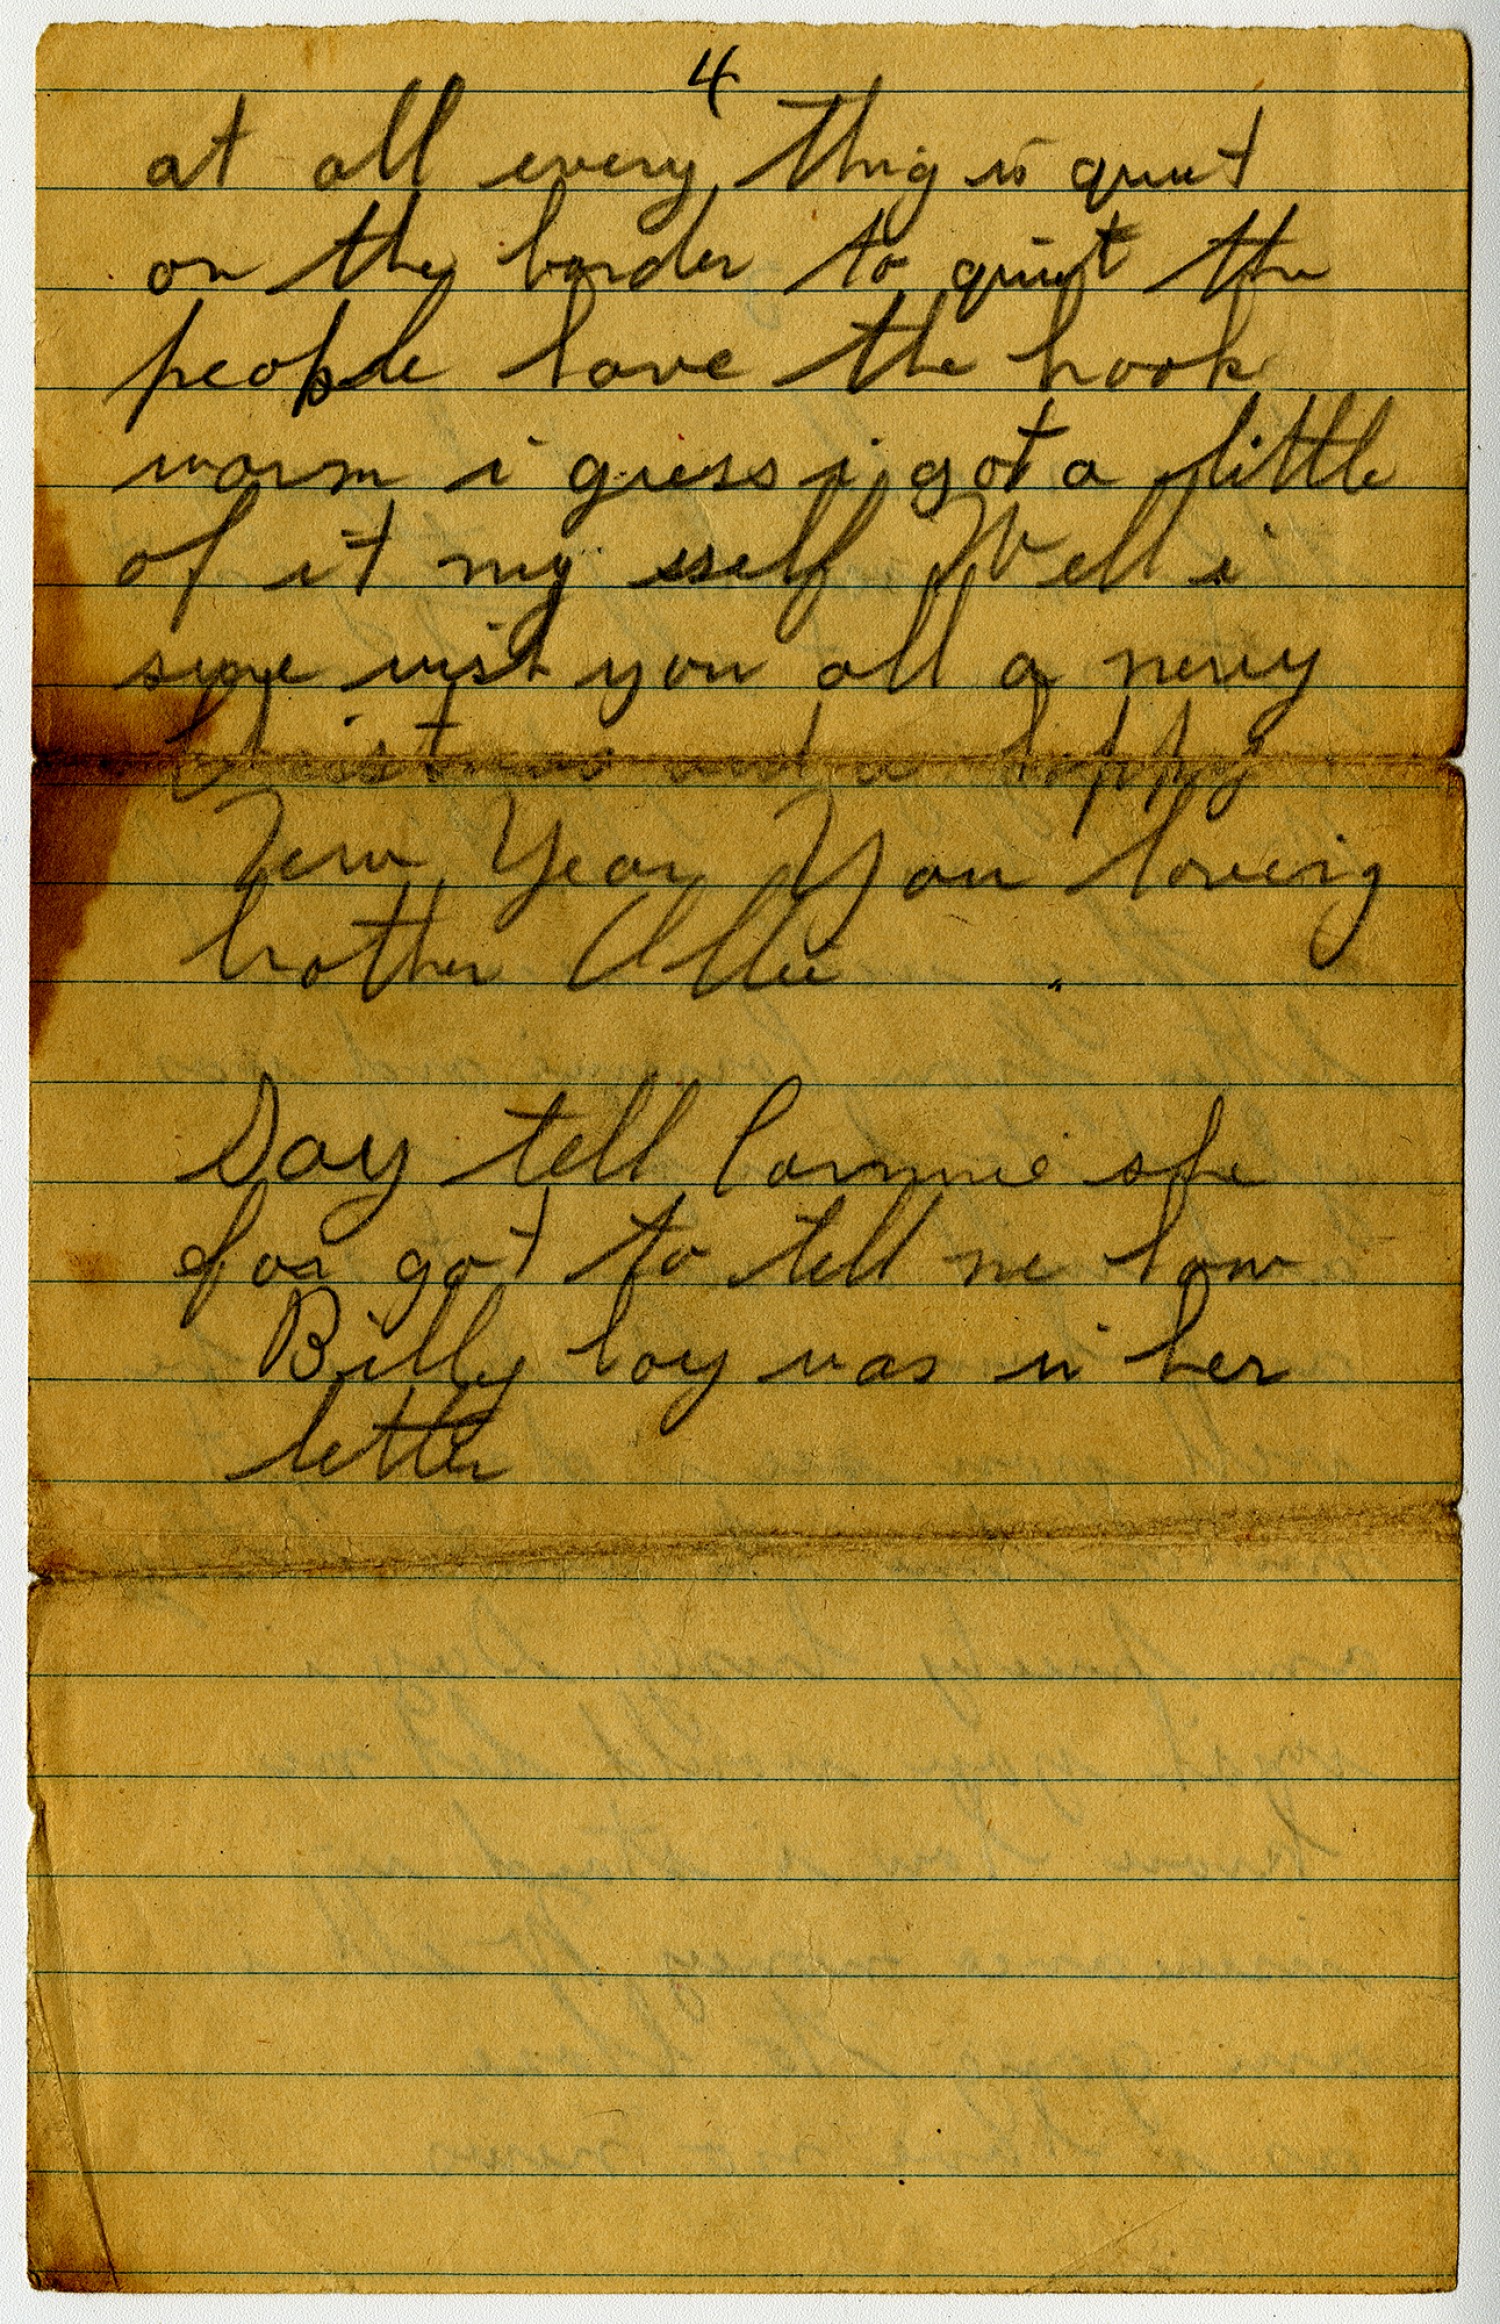 4
at all every thig is quiet
on the border to quiet the
people have the hook
warm i guess i got a little
of it my sself Well i
sure wish you all a mery
Christmas and a happy
New Year Your loveig
brother Ollie

Say tell Connie she
for got to tell me how
Billy boy was in her
letter